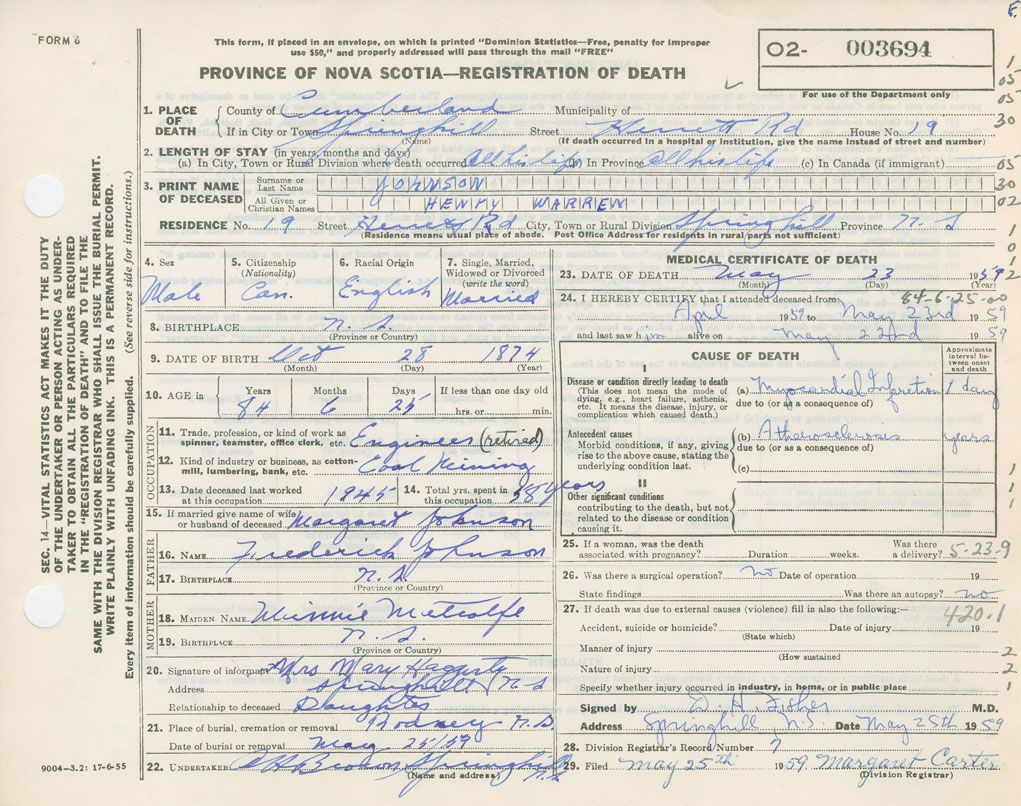 FORM 6
This form, if placed in an envelope, on which is printed "Dominion Statistics—Free, penalty for improper
use $50," and properly addressed will pass through the mail "FREE"
PROVINCE OF NOVA SCOTIA—REGISTRATION OF DEATH
O2- 003694
For use of the Department only
1. PLACE OF DEATH
County of Cumberland Municipality of
If in City or Town Springhill Street Herrett Rd House No. 19
(Name) (If death occurred in a hospital or institution, give the name instead of street and number)
2. LENGTH OF STAY (in years, months and days)
(a) In City, Town or Rural Division where death occurred All his life (b) In Province all his life (c) In Canada (if immigrant)
3. PRINT NAME OF DECEASED
Surname or Last Name JOHNSON
All Given or Christian Names HENRY WARREN
RESIDENCE No. 19 Street Herrett Rd City, Town or Rural Division Springhill Province N. S
(Residence means usual place of abode. Post Office Address for residents in rural parts not sufficient)
4. Sex
Male
5. Citizenship
(Nationality)
Can.
6. Racial Origin
English
7. Single, Married, Widowed or Divorced
(write the word)
Married
8. BIRTHPLACE N. S.
(Province or Country)
9. DATE OF BIRTH Oct 28 1874
(Month) (Day) (Year)
10. AGE in
Years Months Days If less than one day old
84 6 25 hrs. or min.
OCCUPATION
11. Trade, profession, or kind of work as
spinner, teamster, office clerk, etc. Engineer (retired)
12. Kind of industry or business, as cotton-
mill, lumbering, bank, etc. Coal Mining
13. Date deceased last worked
at this occupation 1945
14. Total yrs. spent in
this occupation 58 years
15. If married give name of wife
or husband of deceased Margaret Johnson
FATHER
16. NAME Frederick Johnson
17. BIRTHPLACE N. S.
(Province or Country)
MOTHER
18. MAIDEN NAME Minnie Metcalfe
19. BIRTHPLACE N. S.
(Province or Country)
20. Signature of informant Mrs Mary Haggerty
Address Springhill N S
Relationship to deceased Daughter
21. Place of burial, cremation or removal Rodney N. S.
Date of burial or removal May 25/59
22. UNDERTAKER Brown Springhill N. S.
(Name and address)
9004-3.2: 17-6-55
MEDICAL CERTIFICATE OF DEATH
23. DATE OF DEATH May 23 1959
(Month) (Day) (Year)
84-6-25-00
24. I HEREBY CERTIFY that I attended deceased from
April 1959 to May 23rd 1959
and last saw him alive on May 22nd 1959
CAUSE OF DEATH
Approximate interval between onset and death
I
Disease or condition directly leading to death
(This does not mean the mode of
dying, e.g., heart failure, asthenia,
etc. It means the disease, injury, or
complication which caused death.)
(a) Myocardial Infarction 1 day
due to (or as a consequence of)
Antecedent causes
Morbid conditions, if any, giving
rise to the above cause, stating the
underlying condition last.
(b) Atherosclerosis years
due to (or as a consequence of)
(c)
II
Other significant conditions
contributing to the death, but not
related to the disease or condition
causing it.
25. If a woman, was the death
associated with pregnancy? Duration weeks. Was there a delivery?
5-23-9
26. Was there a surgical operation? no Date of operation 19
State findings Was there an autopsy? no
27. If death was due to external causes (violence) fill in also the following:—
420.1
Accident, suicide or homicide? Date of injury 19
(State which)
Manner of injury
(How sustained
Nature of injury
Specify whether injury occurred in industry, in home, or in public place
Signed by D. H. Fisher M.D.
Address Springhill N.S. Date May 25th 1959
28. Division Registrar's Record Number 7
29. Filed May 25th 1959 Margaret Carter
(Division Registrar)
SEC. 14—VITAL STATISTICS ACT MAKES IT THE DUTY
OF THE UNDERTAKER OR PERSON ACTING AS UNDER-
TAKER TO OBTAIN ALL THE PARTICULARS REQUIRED
IN THE "REGISTRATION OF DEATH" AND TO FILE THE
SAME WITH THE DIVISION REGISTRAR WHO SHALL ISSUE THE BURIAL PERMIT.
WRITE PLAINLY WITH UNFADING INK. THIS IS A PERMANENT RECORD.
Every item of information should be carefully supplied. (See reverse side for instructions.)
1
05
05
30
05
30
02
1
0
1
2
1
1
1
2
2
1